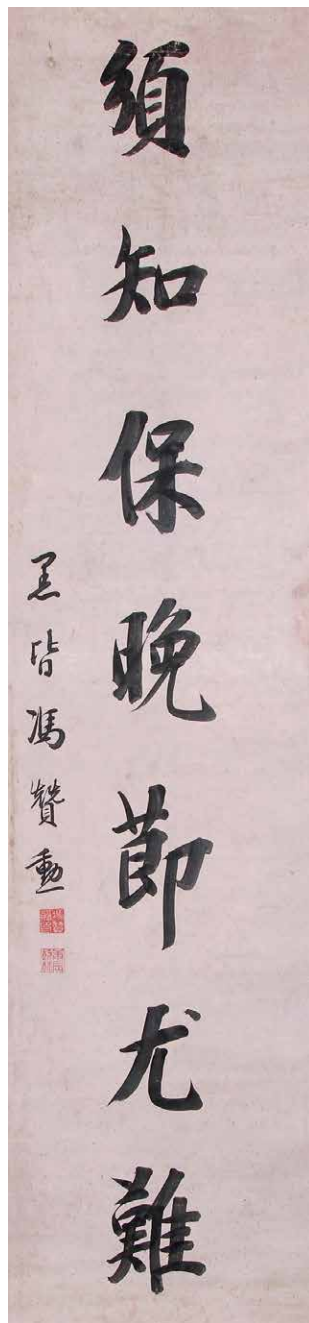 須知保晚節尤難
馮贊勳